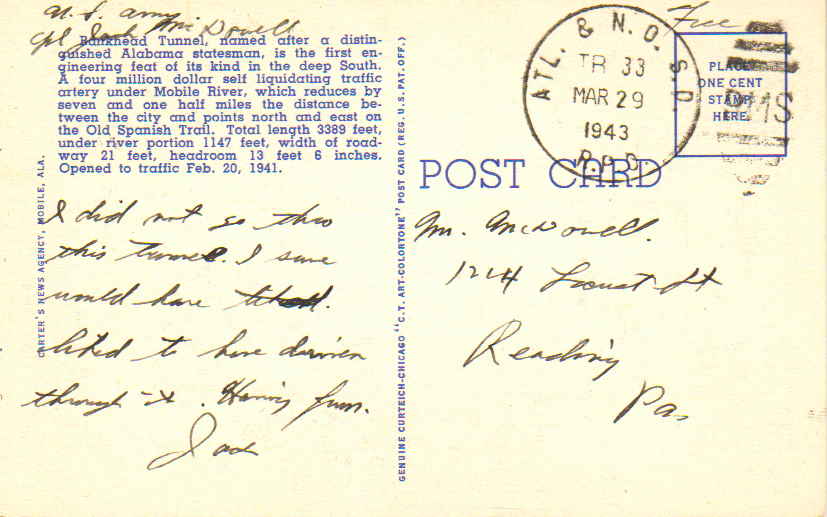 U.S. Army
Cpl Jack McDowell
Bankhead Tunnel, named after a distin-
guished Alabama statesman, is the first en-
gineering feat of its kind in the deep South.
A four million dollar self liquidating traffic
artery under Mobile River, which reduces by
seven and one half miles the distance be-
tween the city and points north and east on
the Old Spanish Trail. Total length 3389 feet,
under river portion 1147 feet, width of road-
way 21 feet, headroom 13 feet 6 inches.
Opened to traffic Feb. 20, 1941.
I did not go thro
this tunnel. I sure
would have
liked to have driven
through it. Having fun.
Jack
CARTER'S NEWS AGENCY, MOBILE, ALA.
GENUINE CURTEICH-CHICAGO "C.T. ART-COLORTONE" POST CARD (REG. U.S. PAT. OFF.)
POST CARD
Free
ATL. & N.O. S.D.
TR 33
MAR 29
1943
R.P.O.
RMS
PLACE
ONE CENT
STAMP
HERE
M. McDowell.
1214 Locust St
Reading
Pa.